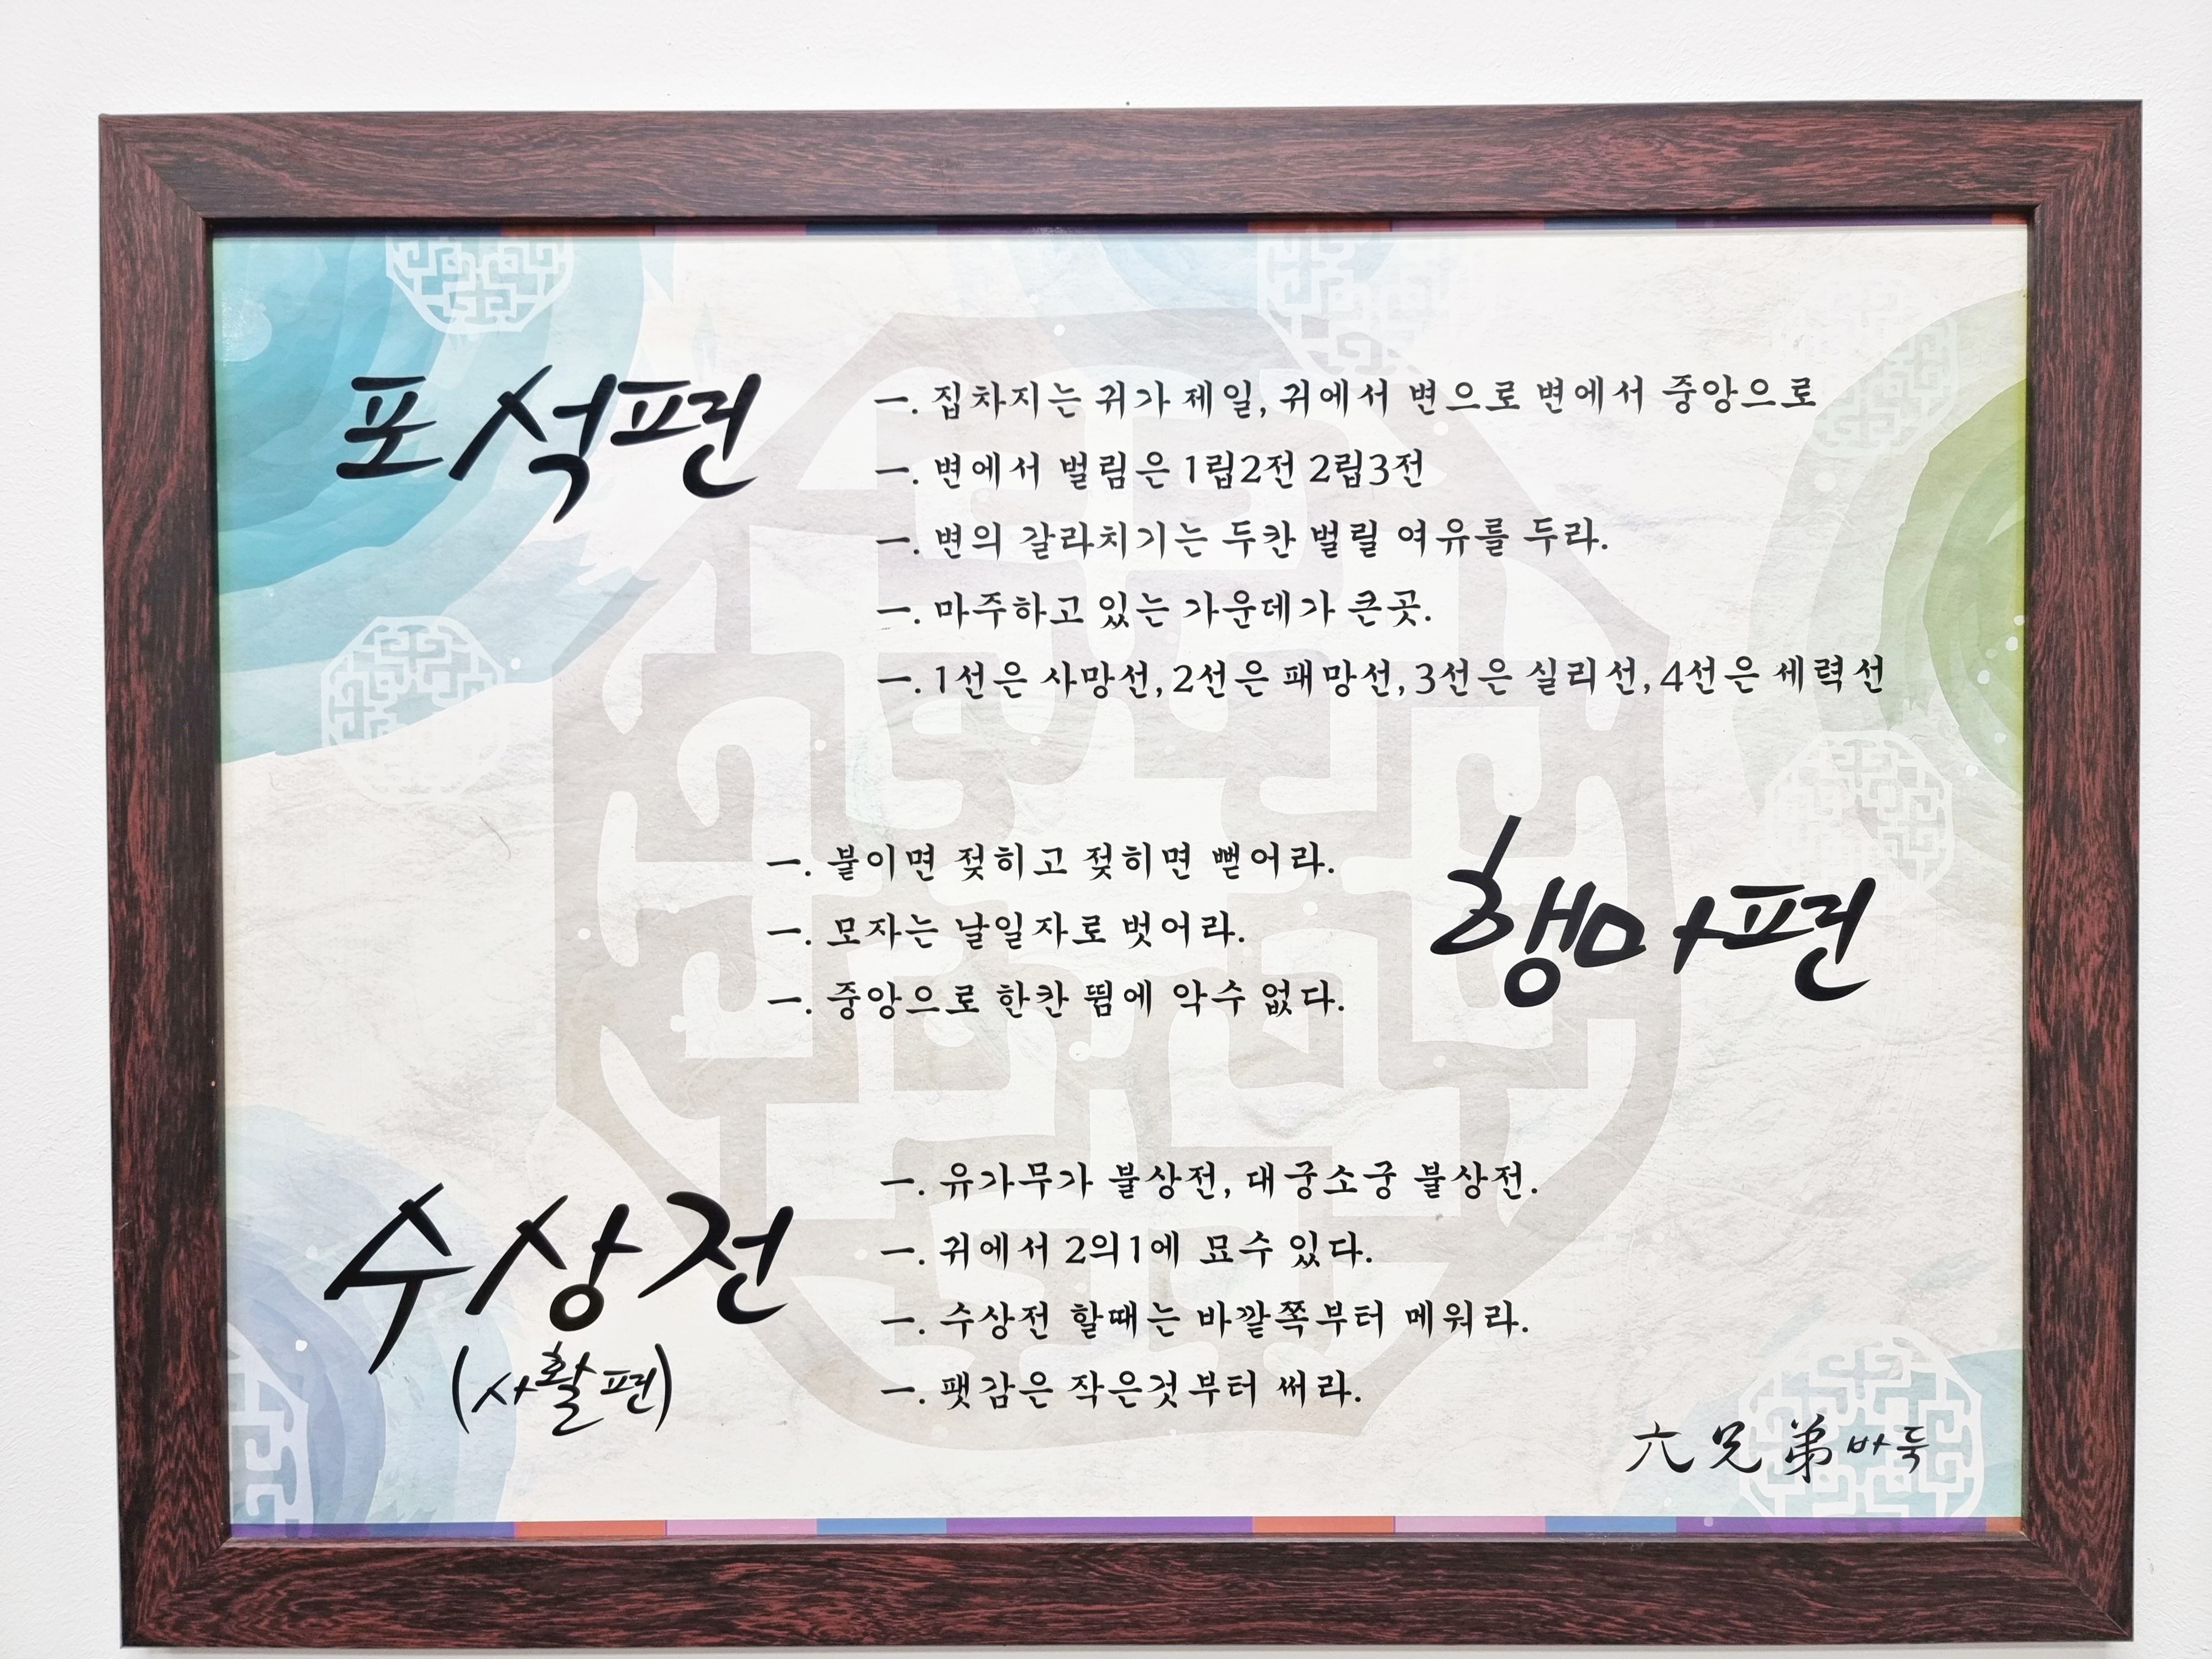 포석편
一. 집차지는 귀가 제일, 귀에서 변으로 변에서 중앙으로
一. 변에서 벌림은 1립2전 2립3전
一. 변의 갈라치기는 두칸 벌릴 여유를 두라.
一. 마주하고 있는 가운데가 큰곳.
一. 1선은 사망선, 2선은 패망선, 3선은 실리선, 4선은 세력선
행마편
一. 붙이면 젖히고 젖히면 뻗어라.
一. 모자는 날일자로 벗어라.
一. 중앙으로 한칸 뜀에 악수 없다.
수상전
(사활편)
一. 유가무가 불상전, 대궁소궁 불상전.
一. 귀에서 2의1에 묘수 있다.
一. 수상전 할때는 바깥쪽부터 메워라.
一. 팻감은 작은것부터 써라.
六兄弟바둑